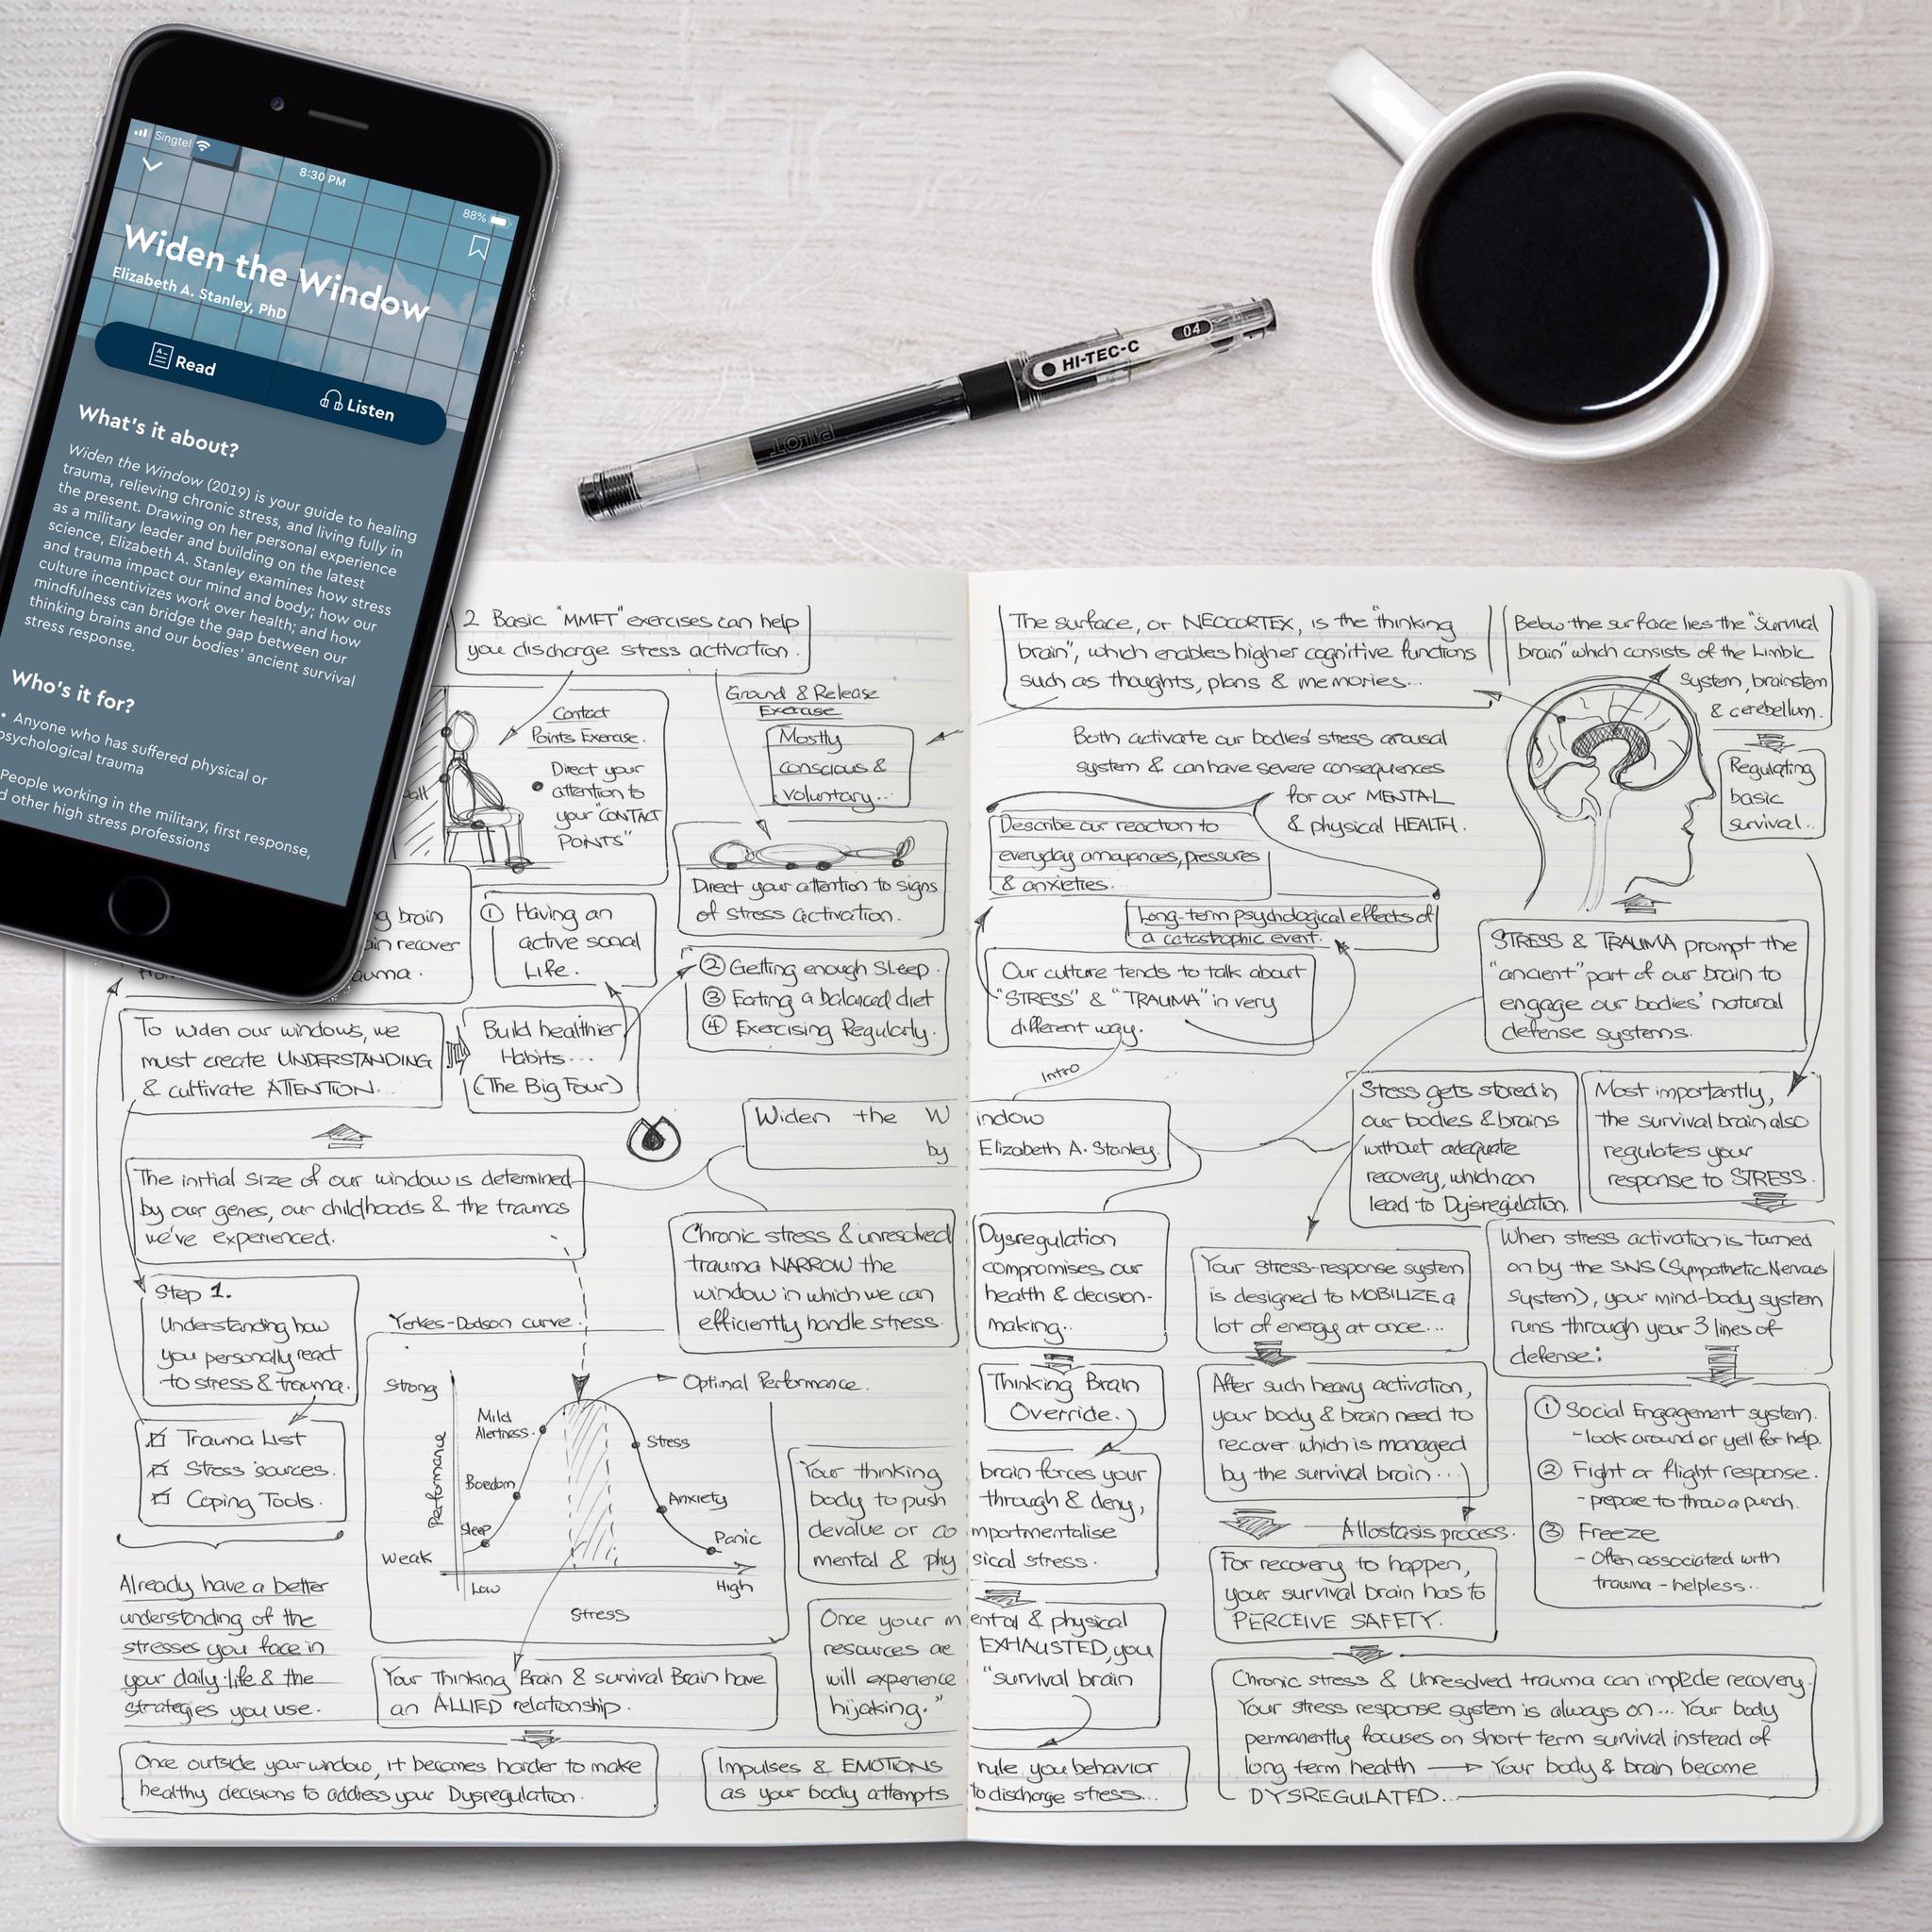 Singtel
8:30 PM
88%
Widen the Window
Elizabeth A. Stanley, PhD
Read
Listen
What's it about?
Widen the Window (2019) is your guide to healing
trauma, relieving chronic stress, and living fully in
the present. Drawing on her personal experience
as a military leader and building on the latest
science, Elizabeth A. Stanley examines how stress
and trauma impact our mind and body; how our
culture incentivizes work over health; and how
mindfulness can bridge the gap between our
thinking brains and our bodies' ancient survival
stress response.
Who's it for?
• Anyone who has suffered physical or
psychological trauma
People working in the military, first response,
d other high stress professions
HI-TEC-C
04
PILOT
2 Basic "MMFT" exercises can help
you discharge stress activation.
Contact
Points Exercise.
Direct your
attention to
your "CONTACT
POINTS"
Ground & Release
Exercise
Mostly
conscious &
voluntary...
Direct your attention to signs
of stress activation.
g brain
ain recover
auma.
① Having an
active social
Life.
② Getting enough Sleep.
③ Eating a balanced diet
④ Exercising Regularly.
To widen our windows, we
must create UNDERSTANDING
& cultivate ATTENTION...
Build healthier
Habits...
(The Big Four)
Widen the Window
by Elizabeth A. Stanley.
The initial size of our window is determined
by our genes, our childhoods & the traumas
we've experienced.
Step 1.
Understanding how
you personally react
to stress & trauma.
Trauma List
Stress sources.
Coping Tools.
Already have a better
understanding of the
stresses you face in
your daily life & the
strategies you use.
Chronic stress & unresolved
trauma NARROW the
window in which we can
efficiently handle stress.
Yerkes-Dodson curve.
Strong
Performance
Weak
Optimal Performance.
Mild
Alertness.
Boredom
Sleep
Stress
Anxiety
Panic
Low
High
Stress
Your Thinking Brain & survival Brain have
an ALLIED relationship.
Once outside your window, it becomes harder to make
healthy decisions to address your Dysregulation.
Dysregulation
compromises our
health & decision-
making..
Thinking Brain
Override.
Your thinking brain forces your
body to push through & deny,
devalue or compartmentalise
mental & physical stress.
Once your mental & physical
resources are EXHAUSTED, you
will experience "survival brain
hijaking."
Impulses & EMOTIONS rule you behavior
as your body attempts to discharge stress...
The surface, or NEOCORTEX, is the "thinking
brain", which enables higher cognitive functions
such as thoughts, plans & memories...
Below the surface lies the "Survival
brain" which consists of the Limbic
System, brainstem
& cerebellum.
Regulating
basic
survival..
Both activate our bodies' stress arousal
system & can have severe consequences
for our MENTAL
& physical HEALTH.
Describe our reaction to
everyday annoyances, pressures
& anxieties.
Long-term psychological effects of
a catastrophic event.
Our culture tends to talk about
"STRESS" & "TRAUMA" in very
different way.
Intro
STRESS & TRAUMA prompt the
"ancient" part of our brain to
engage our bodies' natural
defense systems.
Stress gets stored in
our bodies & brains
without adequate
recovery, which can
lead to Dysregulation.
Most importantly,
the survival brain also
regulates your
response to STRESS.
Your stress-response system
is designed to MOBILIZE a
lot of energy at once...
After such heavy activation,
your body & brain need to
recover which is managed
by the survival brain...
Allostasis process.
For recovery to happen,
your survival brain has to
PERCEIVE SAFETY.
When stress activation is turned
on by the SNS (Sympathetic Nervous
System), your mind-body system
runs through your 3 lines of
defense:
① Social Engagement system.
- look around or yell for help.
② Fight or flight response.
- prepare to throw a punch.
③ Freeze
- Often associated with
trauma - helpless..
Chronic stress & Unresolved trauma can impede recovery.
Your stress response system is always on... Your body
permanently focuses on short term survival instead of
long term health → Your body & brain become
DYSREGULATED...